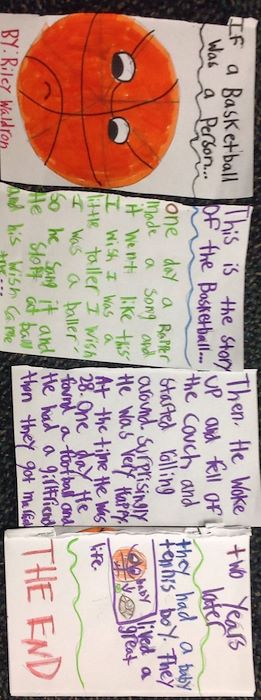 If a Basketball
Was a Person...
BY: Riley Waldron
This is the story
of the Basketball...
One day a Raper
made a song and
it went like this
I wish I was a
little taller I wish
I was a baller.
So he sung it and
the shot ball
and his wish came
Then, He woke
up and fell of
the Couch and
started rolling
around Surprisingly
He was very happy.
At the time He was
28. One day He
found a football and
He had a girlfriend
then they got
two Years
later
they had a baby
tennis boy. They
lived a
great
life.
THE END